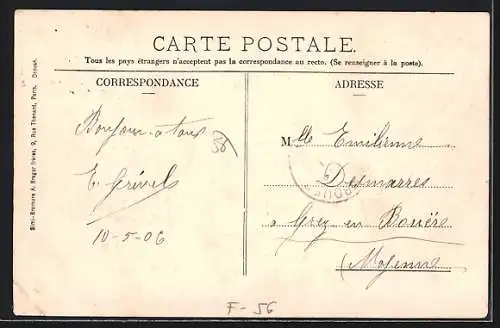 CARTE POSTALE.
Tous les pays étrangers n'acceptent pas la correspondance au recto. (Se renseigner à la poste).
CORRESPONDANCE
ADRESSE
Bonjour a tous
56
E
10-5-06
Mlle Emilienne
Desmarres
à Grez-en Bouère
(Mayenne
Simili-Bromure A. Breger frères, 9, Rue Thénard, Paris.
F-56